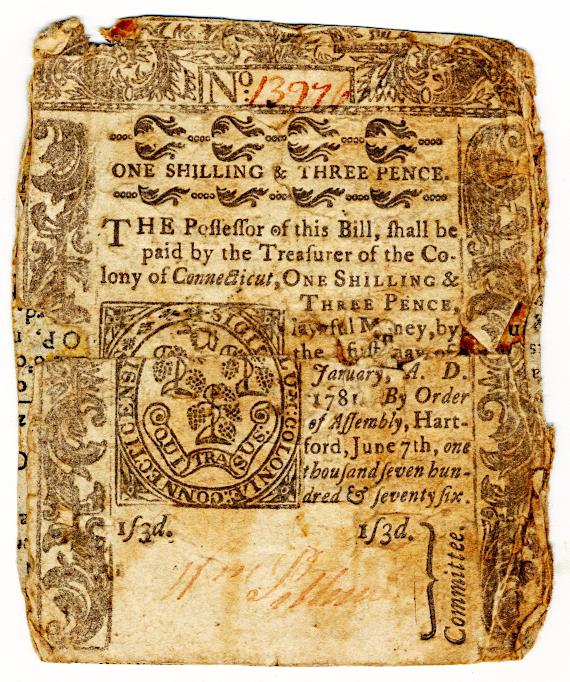 No. 1397
ONE SHILLING & THREE PENCE.
THE Poſſeſſor of this Bill, ſhall be
paid by the Treaſurer of the Co-
lony of Connecticut, ONE SHILLING &
THREE PENCE,
lawful Money, by
the firſt day of
January, A. D.
1781. By Order
of Aſſembly, Hart-
ford, June 7th, one
thouſand ſeven hun-
dred & ſeventy ſix.
SIGILLUM: COLONIÆ: CONNECTICENSIS
QUI TRA SUS
1ſ3d. 1ſ3d.
Wm
Committee.
OP,